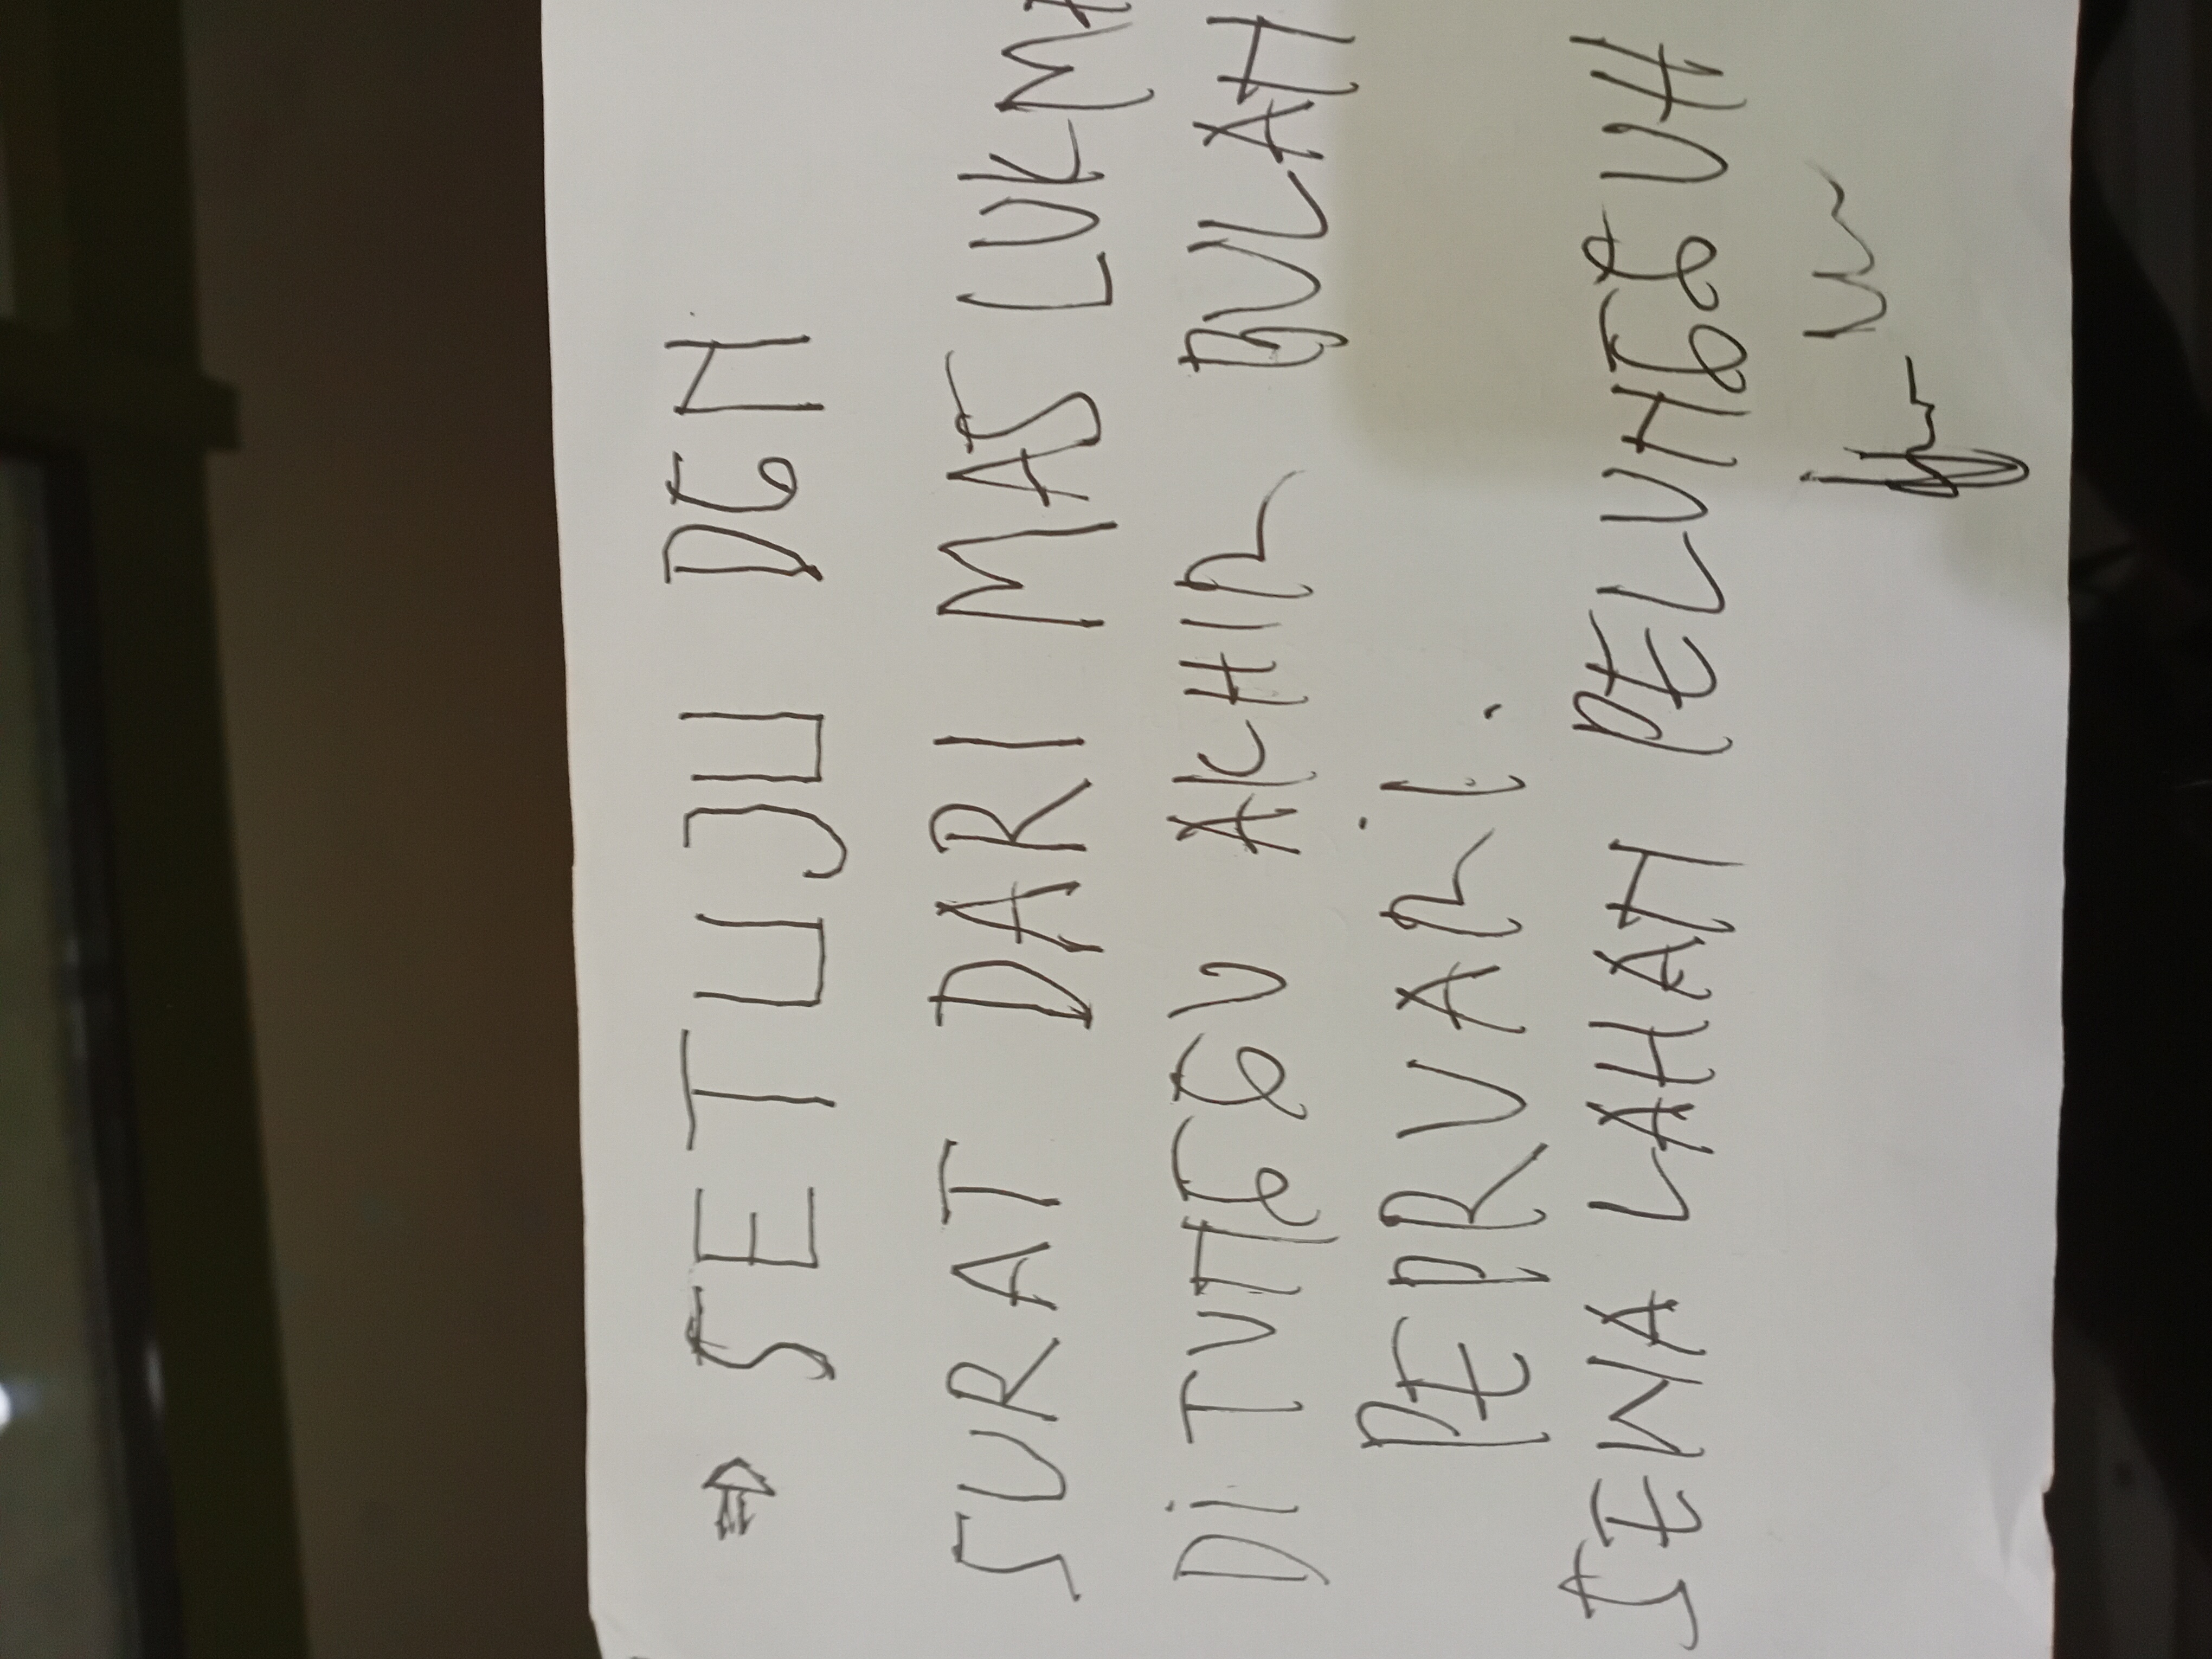 ⇒ SETUJU DGN
SURAT DARI MAS LUKMA
DITUNGGU AKHIR BULAN
PEBRUARI.
SEWA LAHAN PELUNGGUH